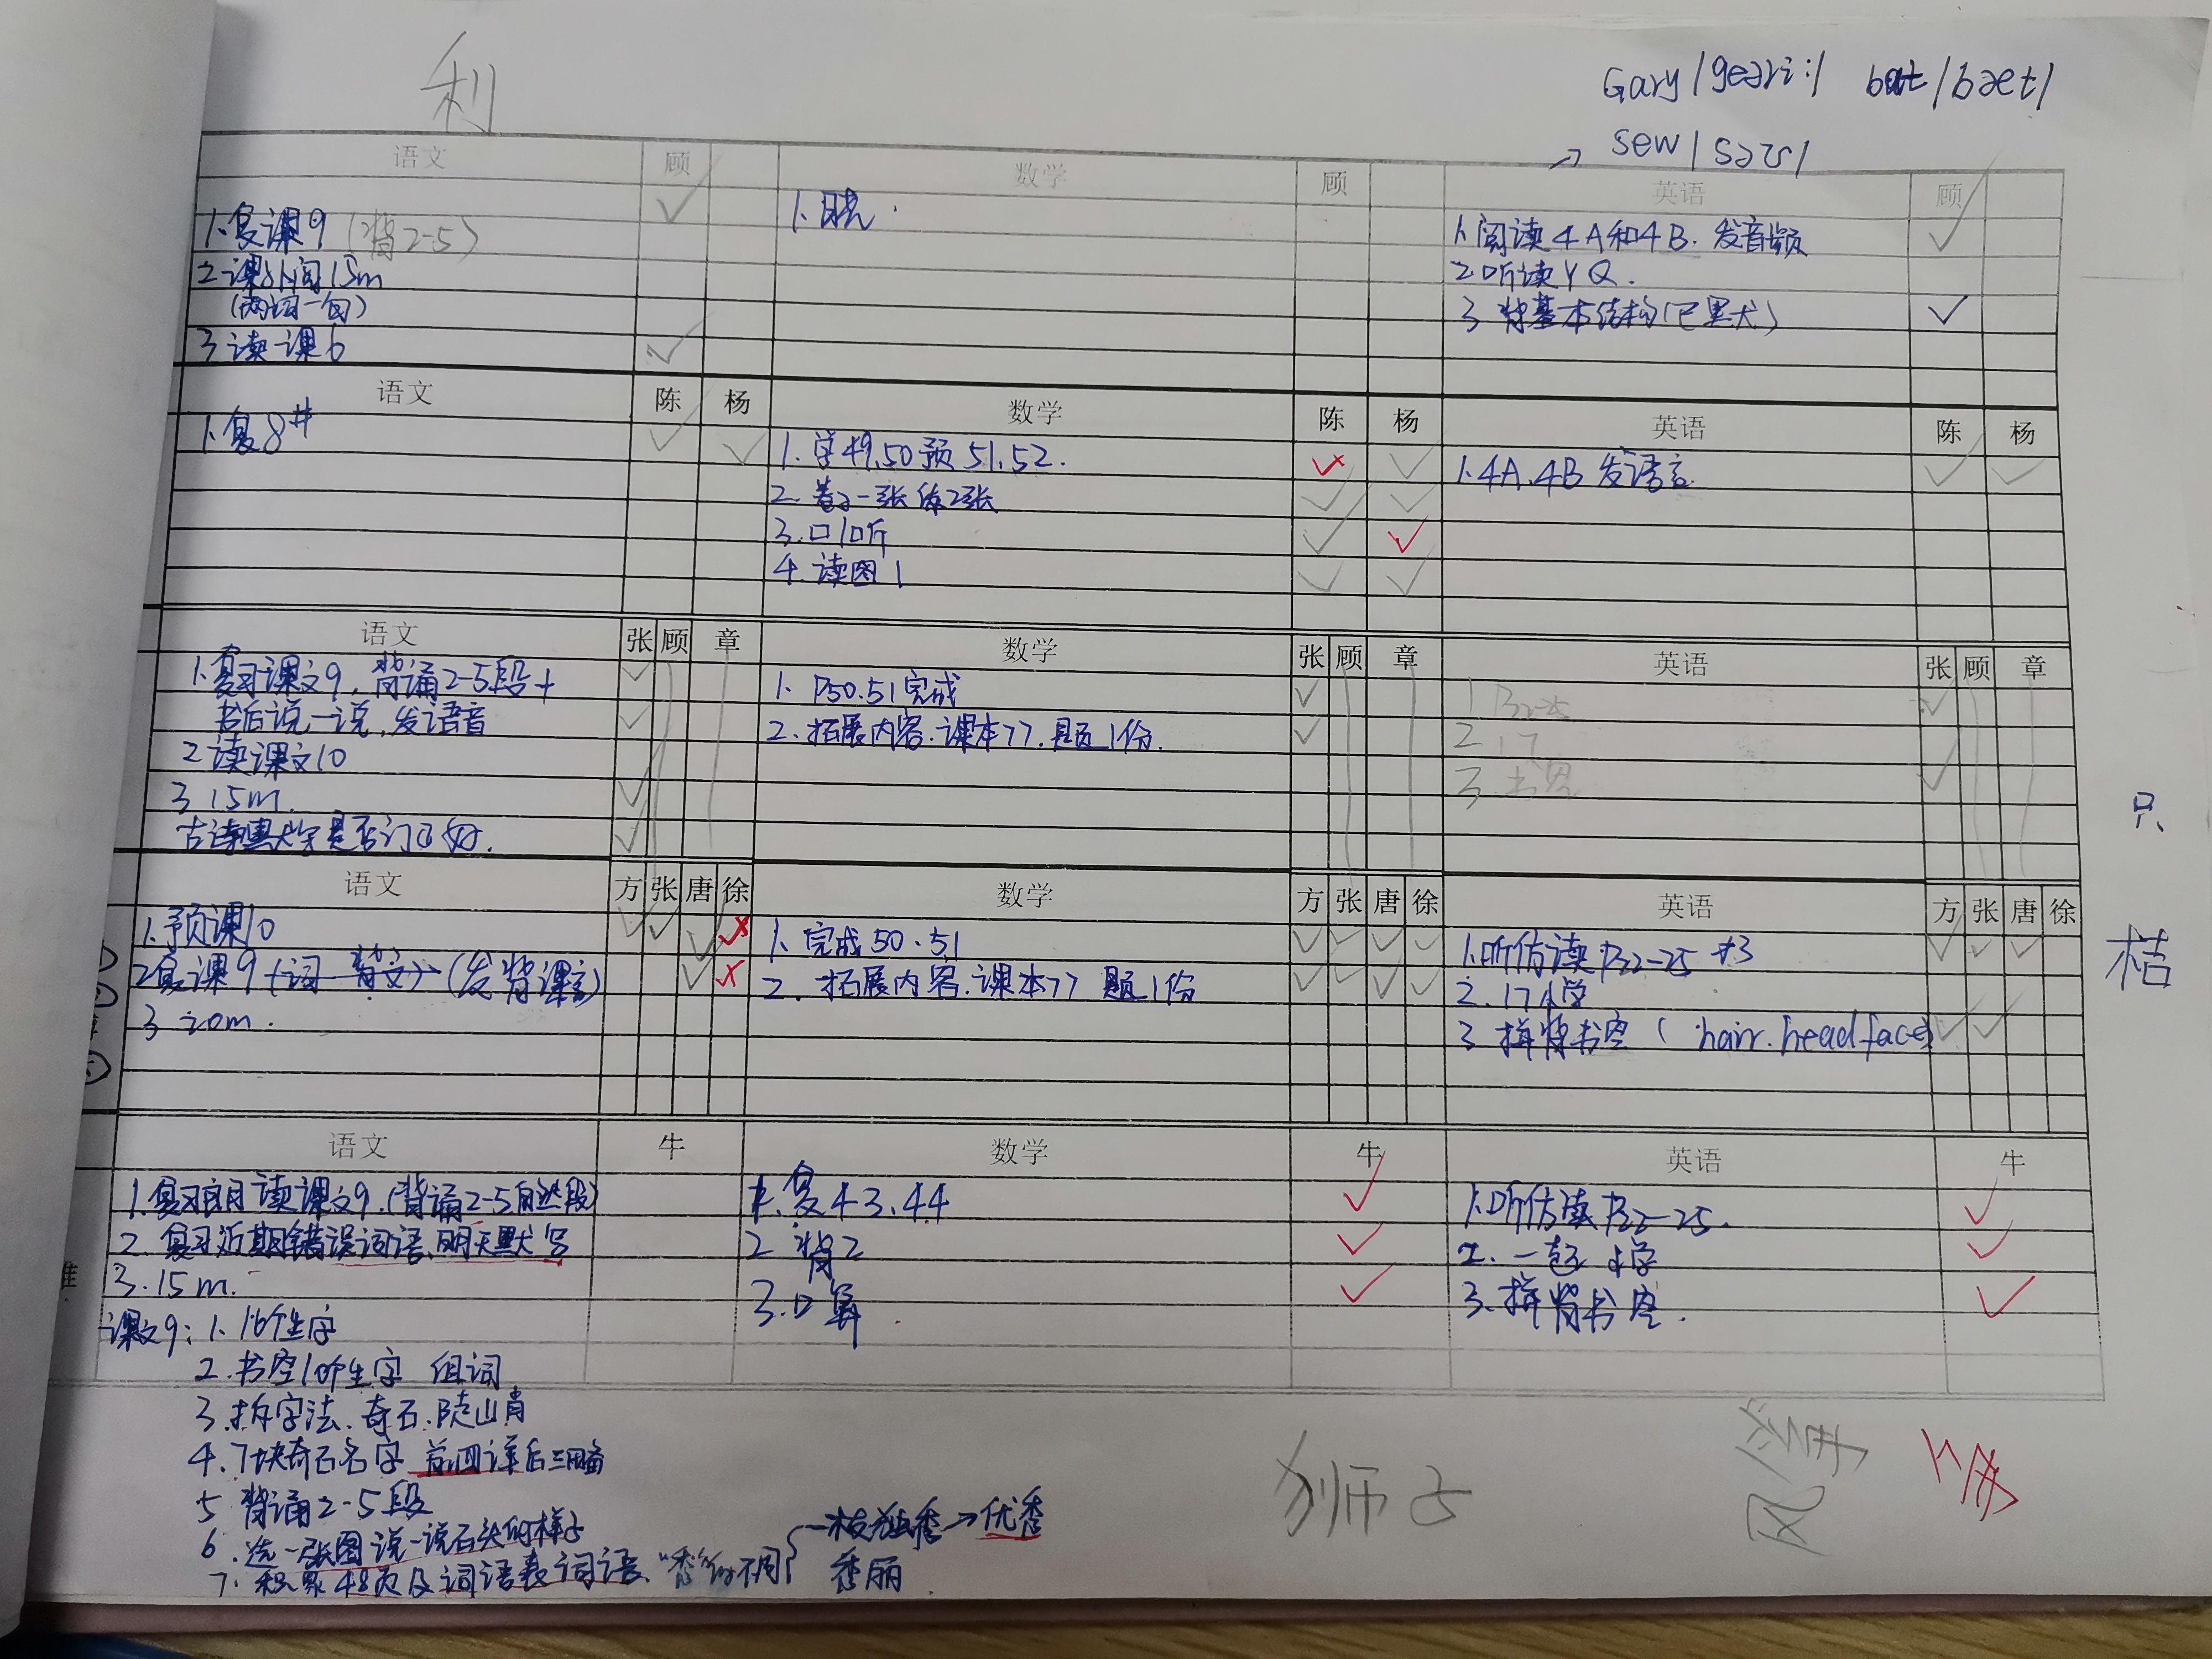 利
Gary /geəri:/ bat /bæt/
→ sew /səʊ/
语文 顾 数学 顾 英语 顾
1.复课9 (背2-5)
2.课外阅15m
(两词一句)
3 读课6
1.
1.阅读4A和4B.发音频
2.听读YQ.
3 背基本结构
语文 陈 杨 数学 陈 杨 英语 陈 杨
1.复8#
1.学49,50预51,52.
2.卷子一张练2张
3.口1听
4.读图1
1.4A,4B发语音
语文 张 顾 章 数学 张 顾 章 英语 张 顾 章
1.复习课文9,背诵2-5段+
书后说一说,发语音
2 读课文10
3 15m.
古诗默字是否订正好.
1. P50.51完成
2.拓展内容.课本77.题1份.
1 P22-25
2 17
3
语文 方 张 唐 徐 数学 方 张 唐 徐 英语 方 张 唐 徐
1.预课10
2复课9(词 背文)(发背课文)
3 20m.
1.完成50.51
2.拓展内容.课本77 题1份
1.听仿读P22-25 #3
2.17小学
3 拼背书空( hair.head face)
语文 牛 数学 牛 英语 牛
1.复习朗读课文9.(背诵2-5自然段)
2.复习近期错误词语,明天默写
3.15m.
1.复43.44
2 背2
3.口算
1.听仿读P22-25.
2.一起小学
3.拼背书空.
课文9: 1. 16个生字
2.书空10个生字 组词
3.拆字法.奇石.陡山肖
4.7块奇石名字 前四详后三略
5 背诵2-5段
6.选一张图说一说石头的样子
7.积累48页及词语表词语."秀"的不同{一枝独秀→优秀
秀丽
只
桔
狮
风